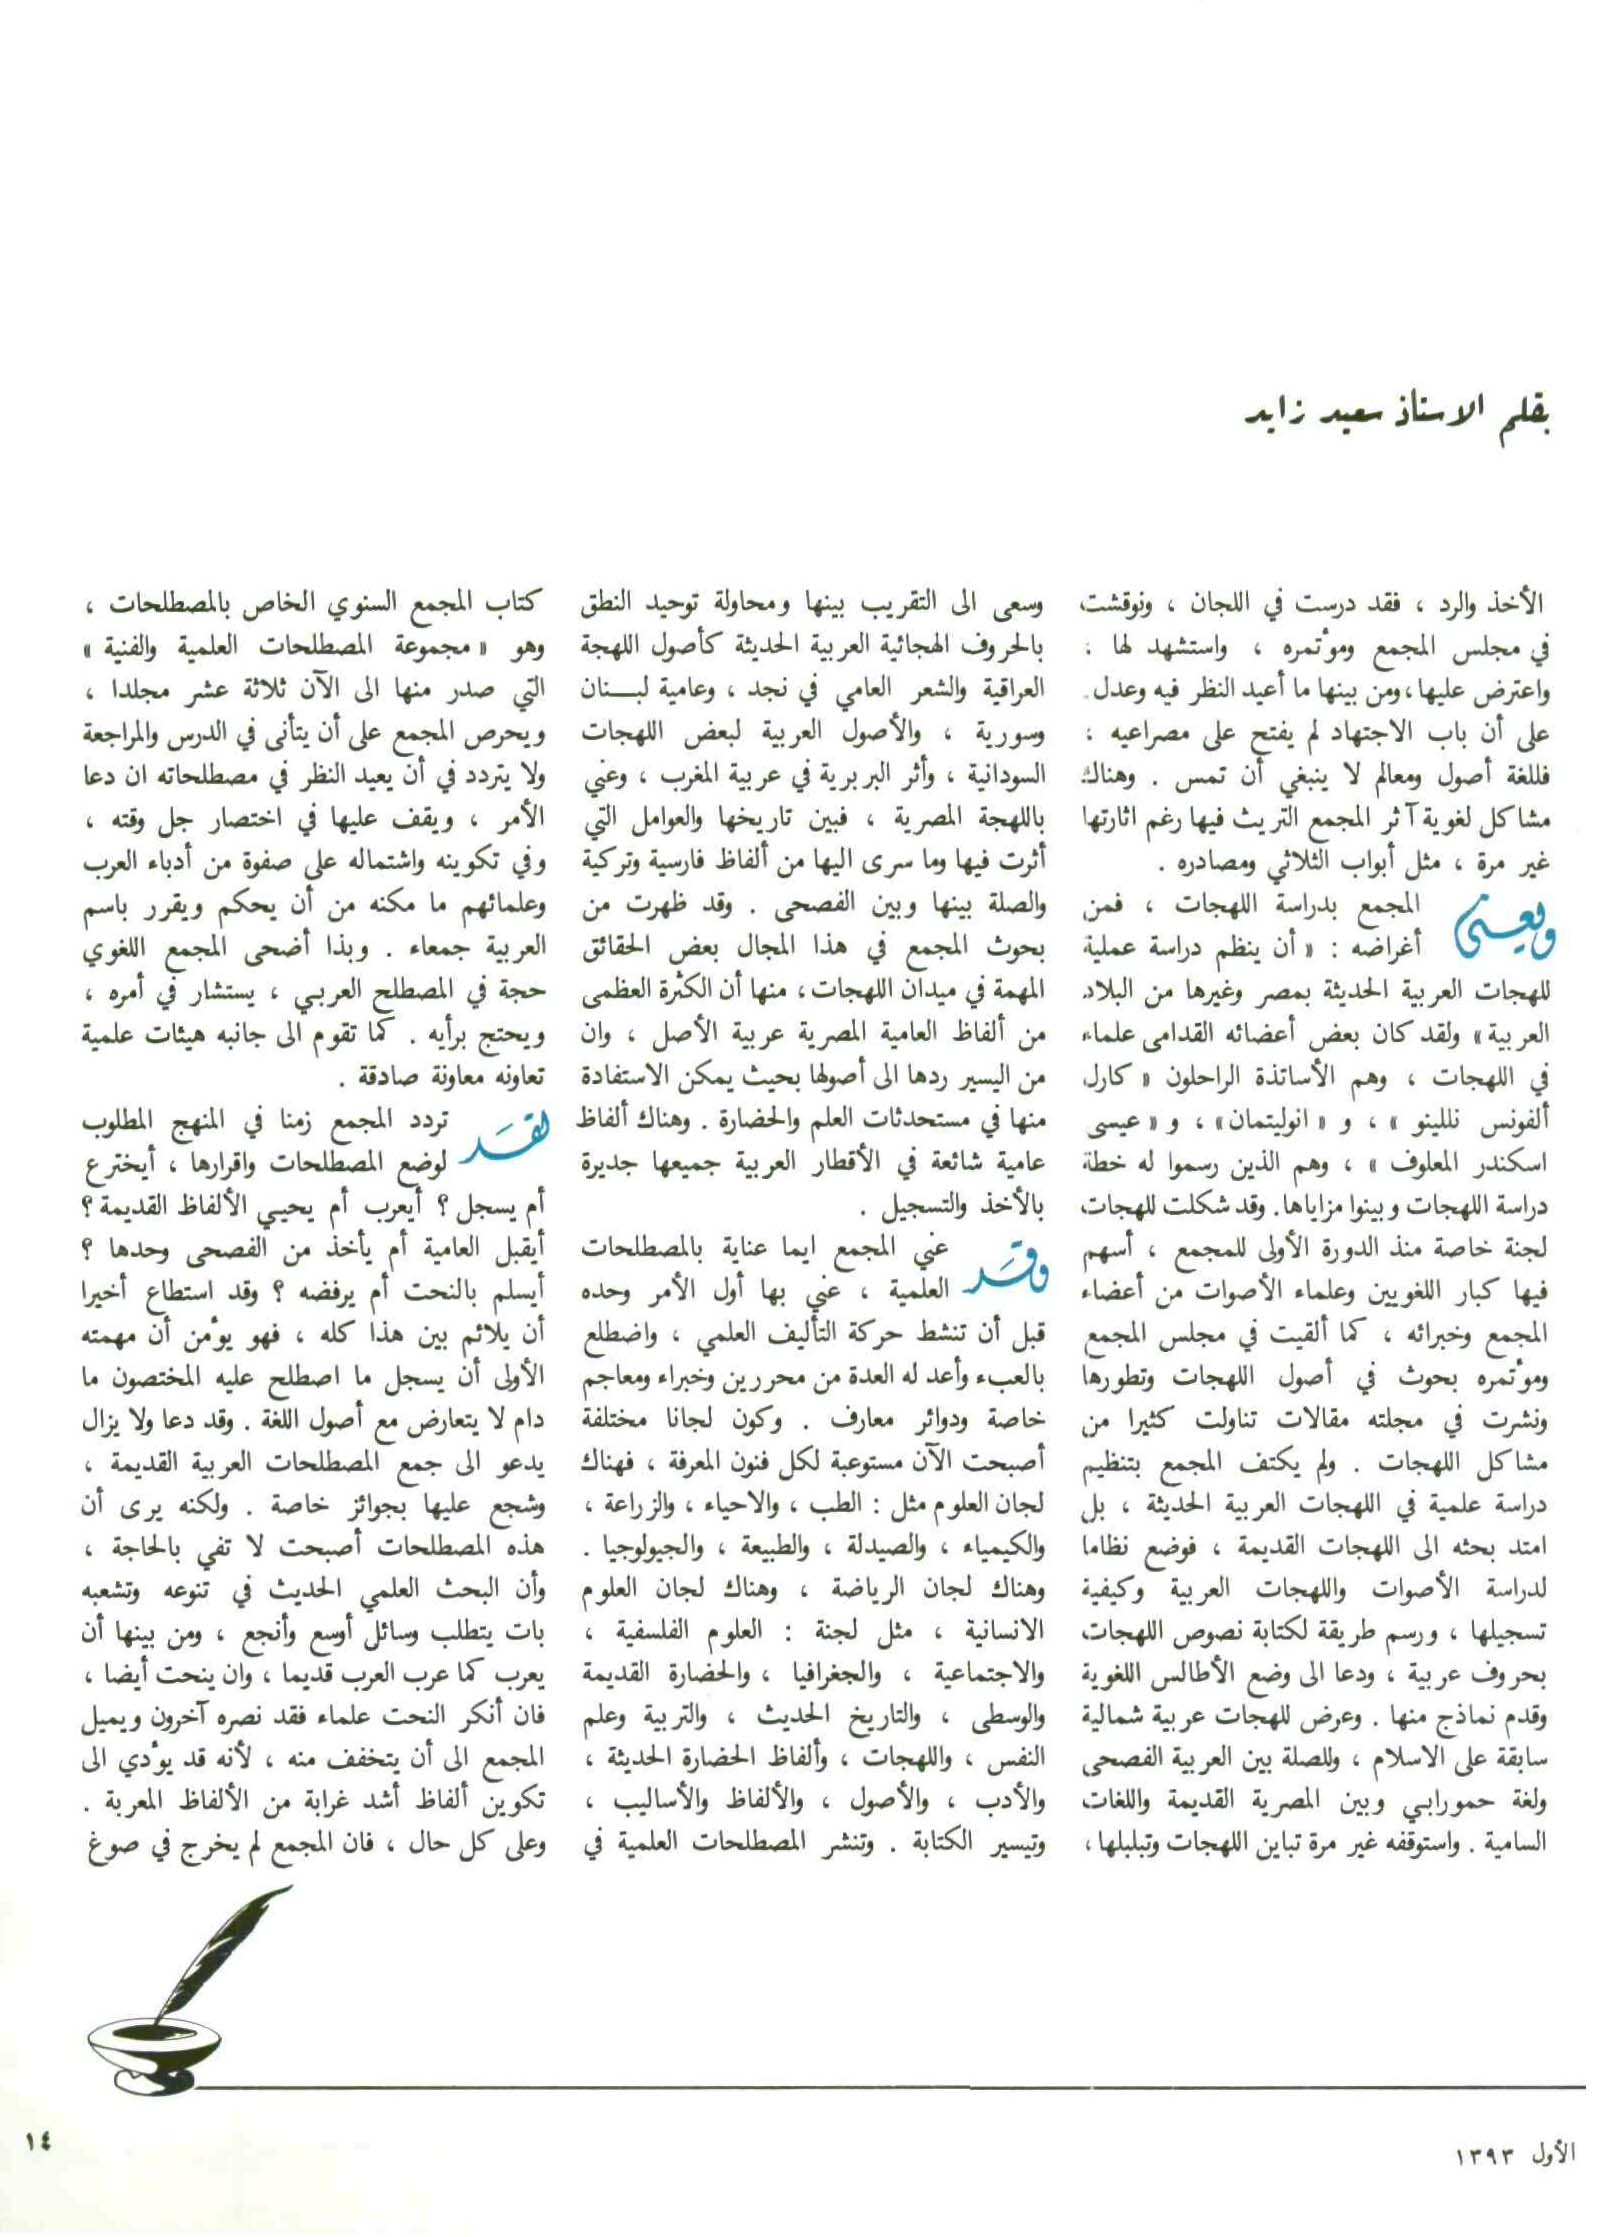 بقلم الاستاذ سعيد زايد
الأخذ والرد ، فقد درست في اللجان ، ونوقشت
في مجلس المجمع ومؤتمره ، واستشهد لها ،
واعترض عليها، ومن بينها ما أعيد النظر فيه وعدل.
على أن باب الاجتهاد لم يفتح على مصراعيه ،
فللغة أصول ومعالم لا ينبغي أن تمس . وهناك
مشاكل لغوية آثر المجمع التريث فيها رغم اثارتها
غير مرة ، مثل أبواب الثلاثي ومصادره .
ويعنى المجمع بدراسة اللهجات ، فمن
أغراضه : « أن ينظم دراسة عملية
للهجات العربية الحديثة بمصر وغيرها من البلاد
العربية» ولقد كان بعض أعضائه القدامى علماء
في اللهجات ، وهم الأساتذة الراحلون « كارل
ألفونس نللينو » ، و « انوليتمان» ، و « عيسى
اسكندر المعلوف » ، وهم الذين رسموا له خطة
دراسة اللهجات وبينوا مزاياها. وقد شكلت للهجات
لجنة خاصة منذ الدورة الأولى للمجمع ، أسهم
فيها كبار اللغويين وعلماء الأصوات من أعضاء
المجمع وخبرائه ، كما ألقيت في مجلس المجمع
ومؤتمره بحوث في أصول اللهجات وتطورها
ونشرت في مجلته مقالات تناولت كثيرا من
مشاكل اللهجات . ولم يكتف المجمع بتنظيم
دراسة علمية في اللهجات العربية الحديثة ، بل
امتد بحثه الى اللهجات القديمة ، فوضع نظاما
لدراسة الأصوات واللهجات العربية وكيفية
تسجيلها ، ورسم طريقة لكتابة نصوص اللهجات
بحروف عربية ، ودعا الى وضع الأطالس اللغوية
وقدم نماذج منها . وعرض للهجات عربية شمالية
سابقة على الاسلام ، وللصلة بين العربية الفصحى
ولغة حمورابي وبين المصرية القديمة واللغات
السامية . واستوقفه غير مرة تباين اللهجات وتبلبلها ،
وسعى الى التقريب بينها ومحاولة توحيد النطق
بالحروف الهجائية العربية الحديثة كأصول اللهجة
العراقية والشعر العامي في نجد ، وعامية لبـــنان
وسورية ، والأصول العربية لبعض اللهجات
السودانية ، وأثر البربرية في عربية المغرب ، وعني
باللهجة المصرية ، فبين تاريخها والعوامل التي
أثرت فيها وما سرى اليها من ألفاظ فارسية وتركية
والصلة بينها وبين الفصحى . وقد ظهرت من
بحوث المجمع في هذا المجال بعض الحقائق
المهمة في ميدان اللهجات، منها أن الكثرة العظمى
من ألفاظ العامية المصرية عربية الأصل ، وان
من اليسير ردها الى أصولها بحيث يمكن الاستفادة
منها في مستحدثات العلم والحضارة . وهناك ألفاظ
عامية شائعة في الأقطار العربية جميعها جديرة
بالأخذ والتسجيل .
وقد عني المجمع ايما عناية بالمصطلحات
العلمية ، عني بها أول الأمر وحده
قبل أن تنشط حركة التأليف العلمي ، واضطلع
بالعبء وأعد له العدة من محررين وخبراء ومعاجم
خاصة ودوائر معارف . وكون لجانا مختلفة
أصبحت الآن مستوعبة لكل فنون المعرفة ، فهناك
لجان العلوم مثل : الطب ، والاحياء ، والزراعة ،
والكيمياء ، والصيدلة ، والطبيعة ، والجيولوجيا .
وهناك لجان الرياضة ، وهناك لجان العلوم
الانسانية ، مثل لجنة : العلوم الفلسفية ،
والاجتماعية ، والجغرافيا ، والحضارة القديمة
والوسطى ، والتاريخ الحديث ، والتربية وعلم
النفس ، واللهجات ، وألفاظ الحضارة الحديثة ،
والأدب ، والأصول ، والألفاظ والأساليب ،
وتيسير الكتابة . وتنشر المصطلحات العلمية في
كتاب المجمع السنوي الخاص بالمصطلحات ،
وهو « مجموعة المصطلحات العلمية والفنية »
التي صدر منها الى الآن ثلاثة عشر مجلدا ،
ويحرص المجمع على أن يتأنى في الدرس والمراجعة
ولا يتردد في أن يعيد النظر في مصطلحاته ان دعا
الأمر ، ويقف عليها في اختصار جل وقته ،
وفي تكوينه واشتماله على صفوة من أدباء العرب
وعلمائهم ما مكنه من أن يحكم ويقرر باسم
العربية جمعاء . وبذا أضحى المجمع اللغوي
حجة في المصطلح العربي ، يستشار في أمره ،
ويحتج برأيه . كما تقوم الى جانبه هيئات علمية
تعاونه معاونة صادقة .
لقد تردد المجمع زمنا في المنهج المطلوب
لوضع المصطلحات واقرارها ، أيخترع
أم يسجل ؟ أيعرب أم يحيي الألفاظ القديمة ؟
أيقبل العامية أم يأخذ من الفصحى وحدها ؟
أيسلم بالنحت أم يرفضه ؟ وقد استطاع أخيرا
أن يلائم بين هذا كله ، فهو يؤمن أن مهمته
الأولى أن يسجل ما اصطلح عليه المختصون ما
دام لا يتعارض مع أصول اللغة . وقد دعا ولا يزال
يدعو الى جمع المصطلحات العربية القديمة ،
وشجع عليها بجوائز خاصة . ولكنه يرى أن
هذه المصطلحات أصبحت لا تفي بالحاجة ،
وأن البحث العلمي الحديث في تنوعه وتشعبه
بات يتطلب وسائل أوسع وأنجع ، ومن بينها أن
يعرب كما عرب العرب قديما ، وان ينحت أيضا ،
فان أنكر النحت علماء فقد نصره آخرون ويميل
المجمع الى أن يتخفف منه ، لأنه قد يؤدي الى
تكوين ألفاظ أشد غرابة من الألفاظ المعربة .
وعلى كل حال ، فان المجمع لم يخرج في صوغ
الأول ١٣٩٣
١٤